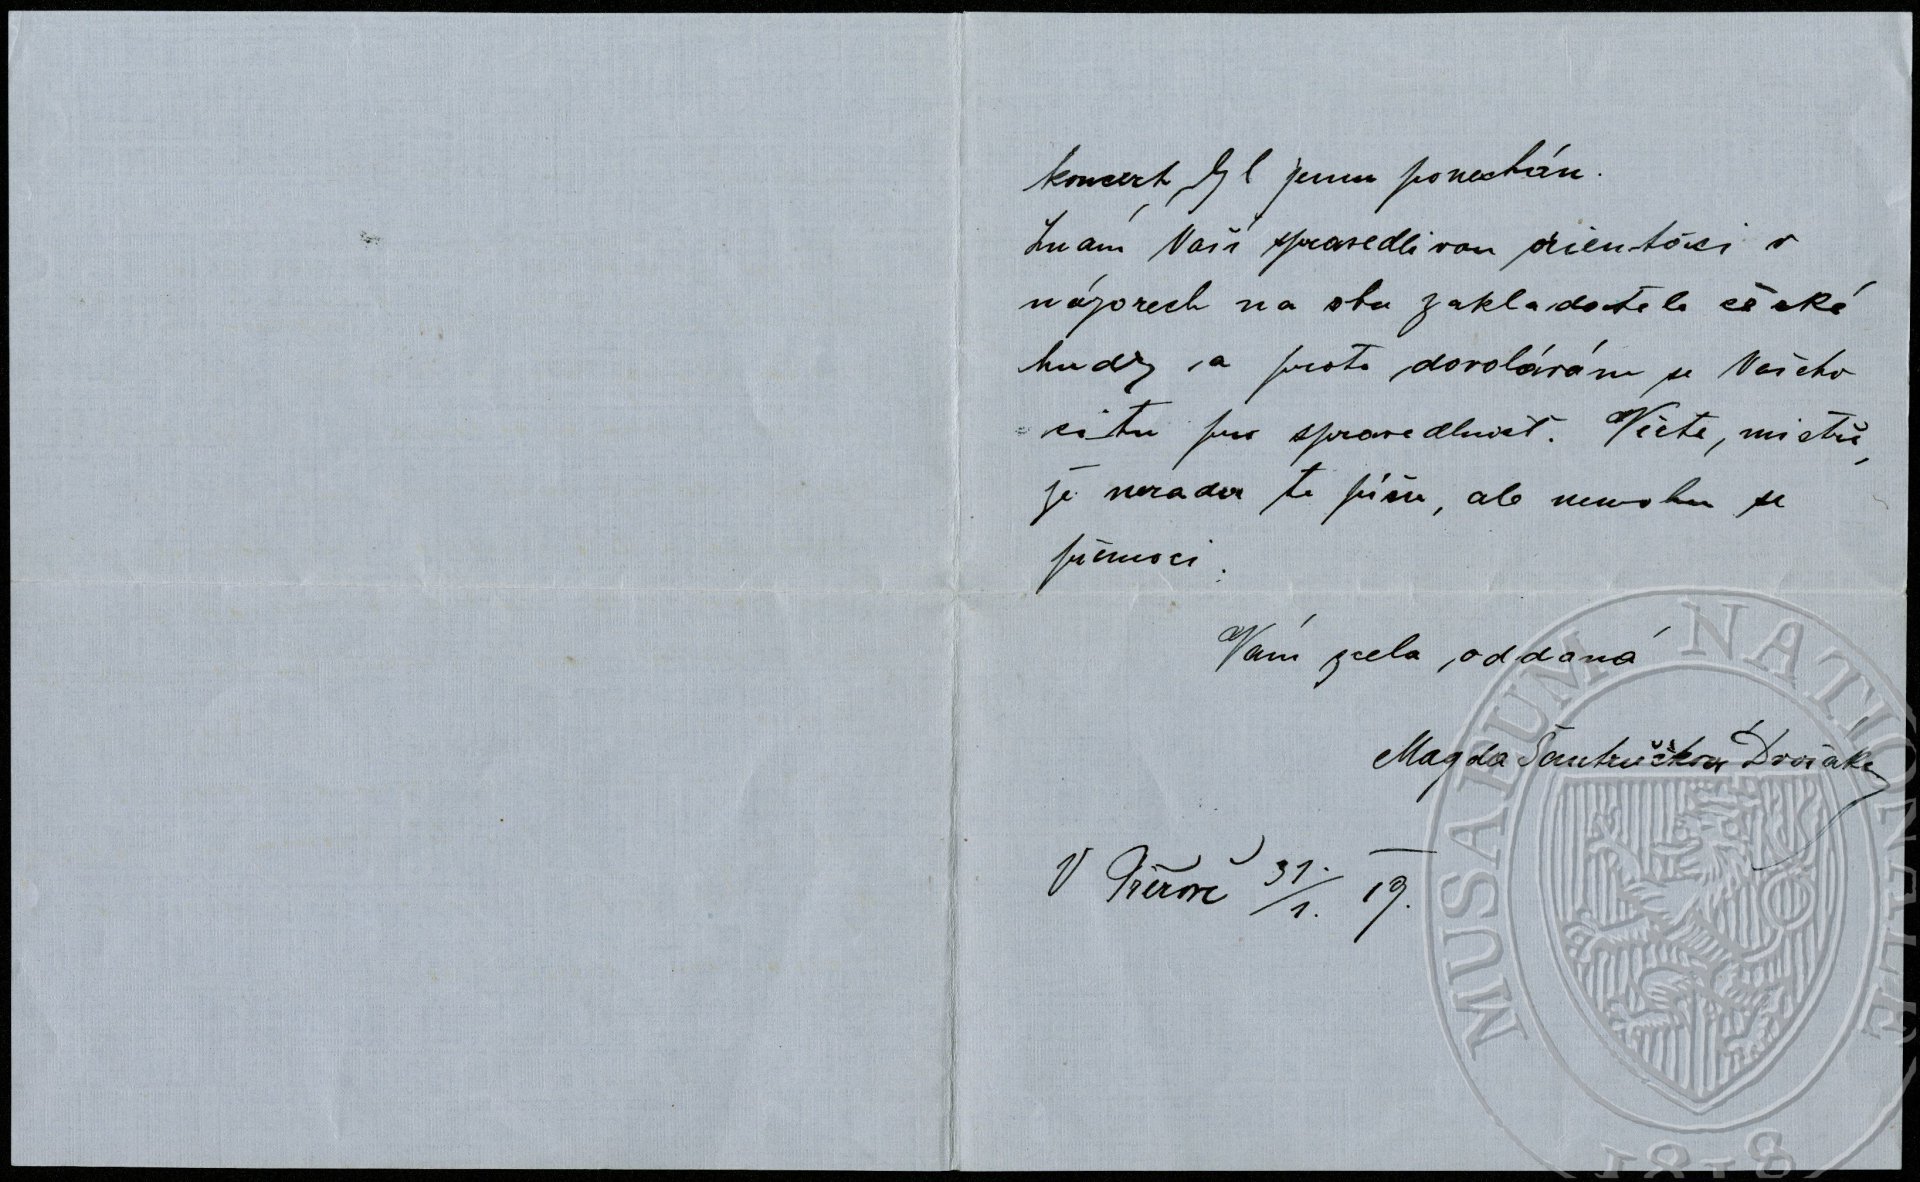 koncert byl jemu ponechán.
Znám Vaši spravedlivou orientaci v
názorech na oba zakladatele české
hudby a proto dovolávám se Vašeho
citu pro spravedlnost. Věřte, mistře,
že nerada to píšu, ale nemohu se
přemoci.
Vám zcela oddaná
Magda Šantrůčková Dvořáků
V Přerově 31./1. 19.
MUSAEUM NATIONALE
1818